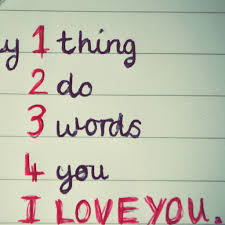 y 1 thing
2 do
3 words
4 you
I LOVE YOU.